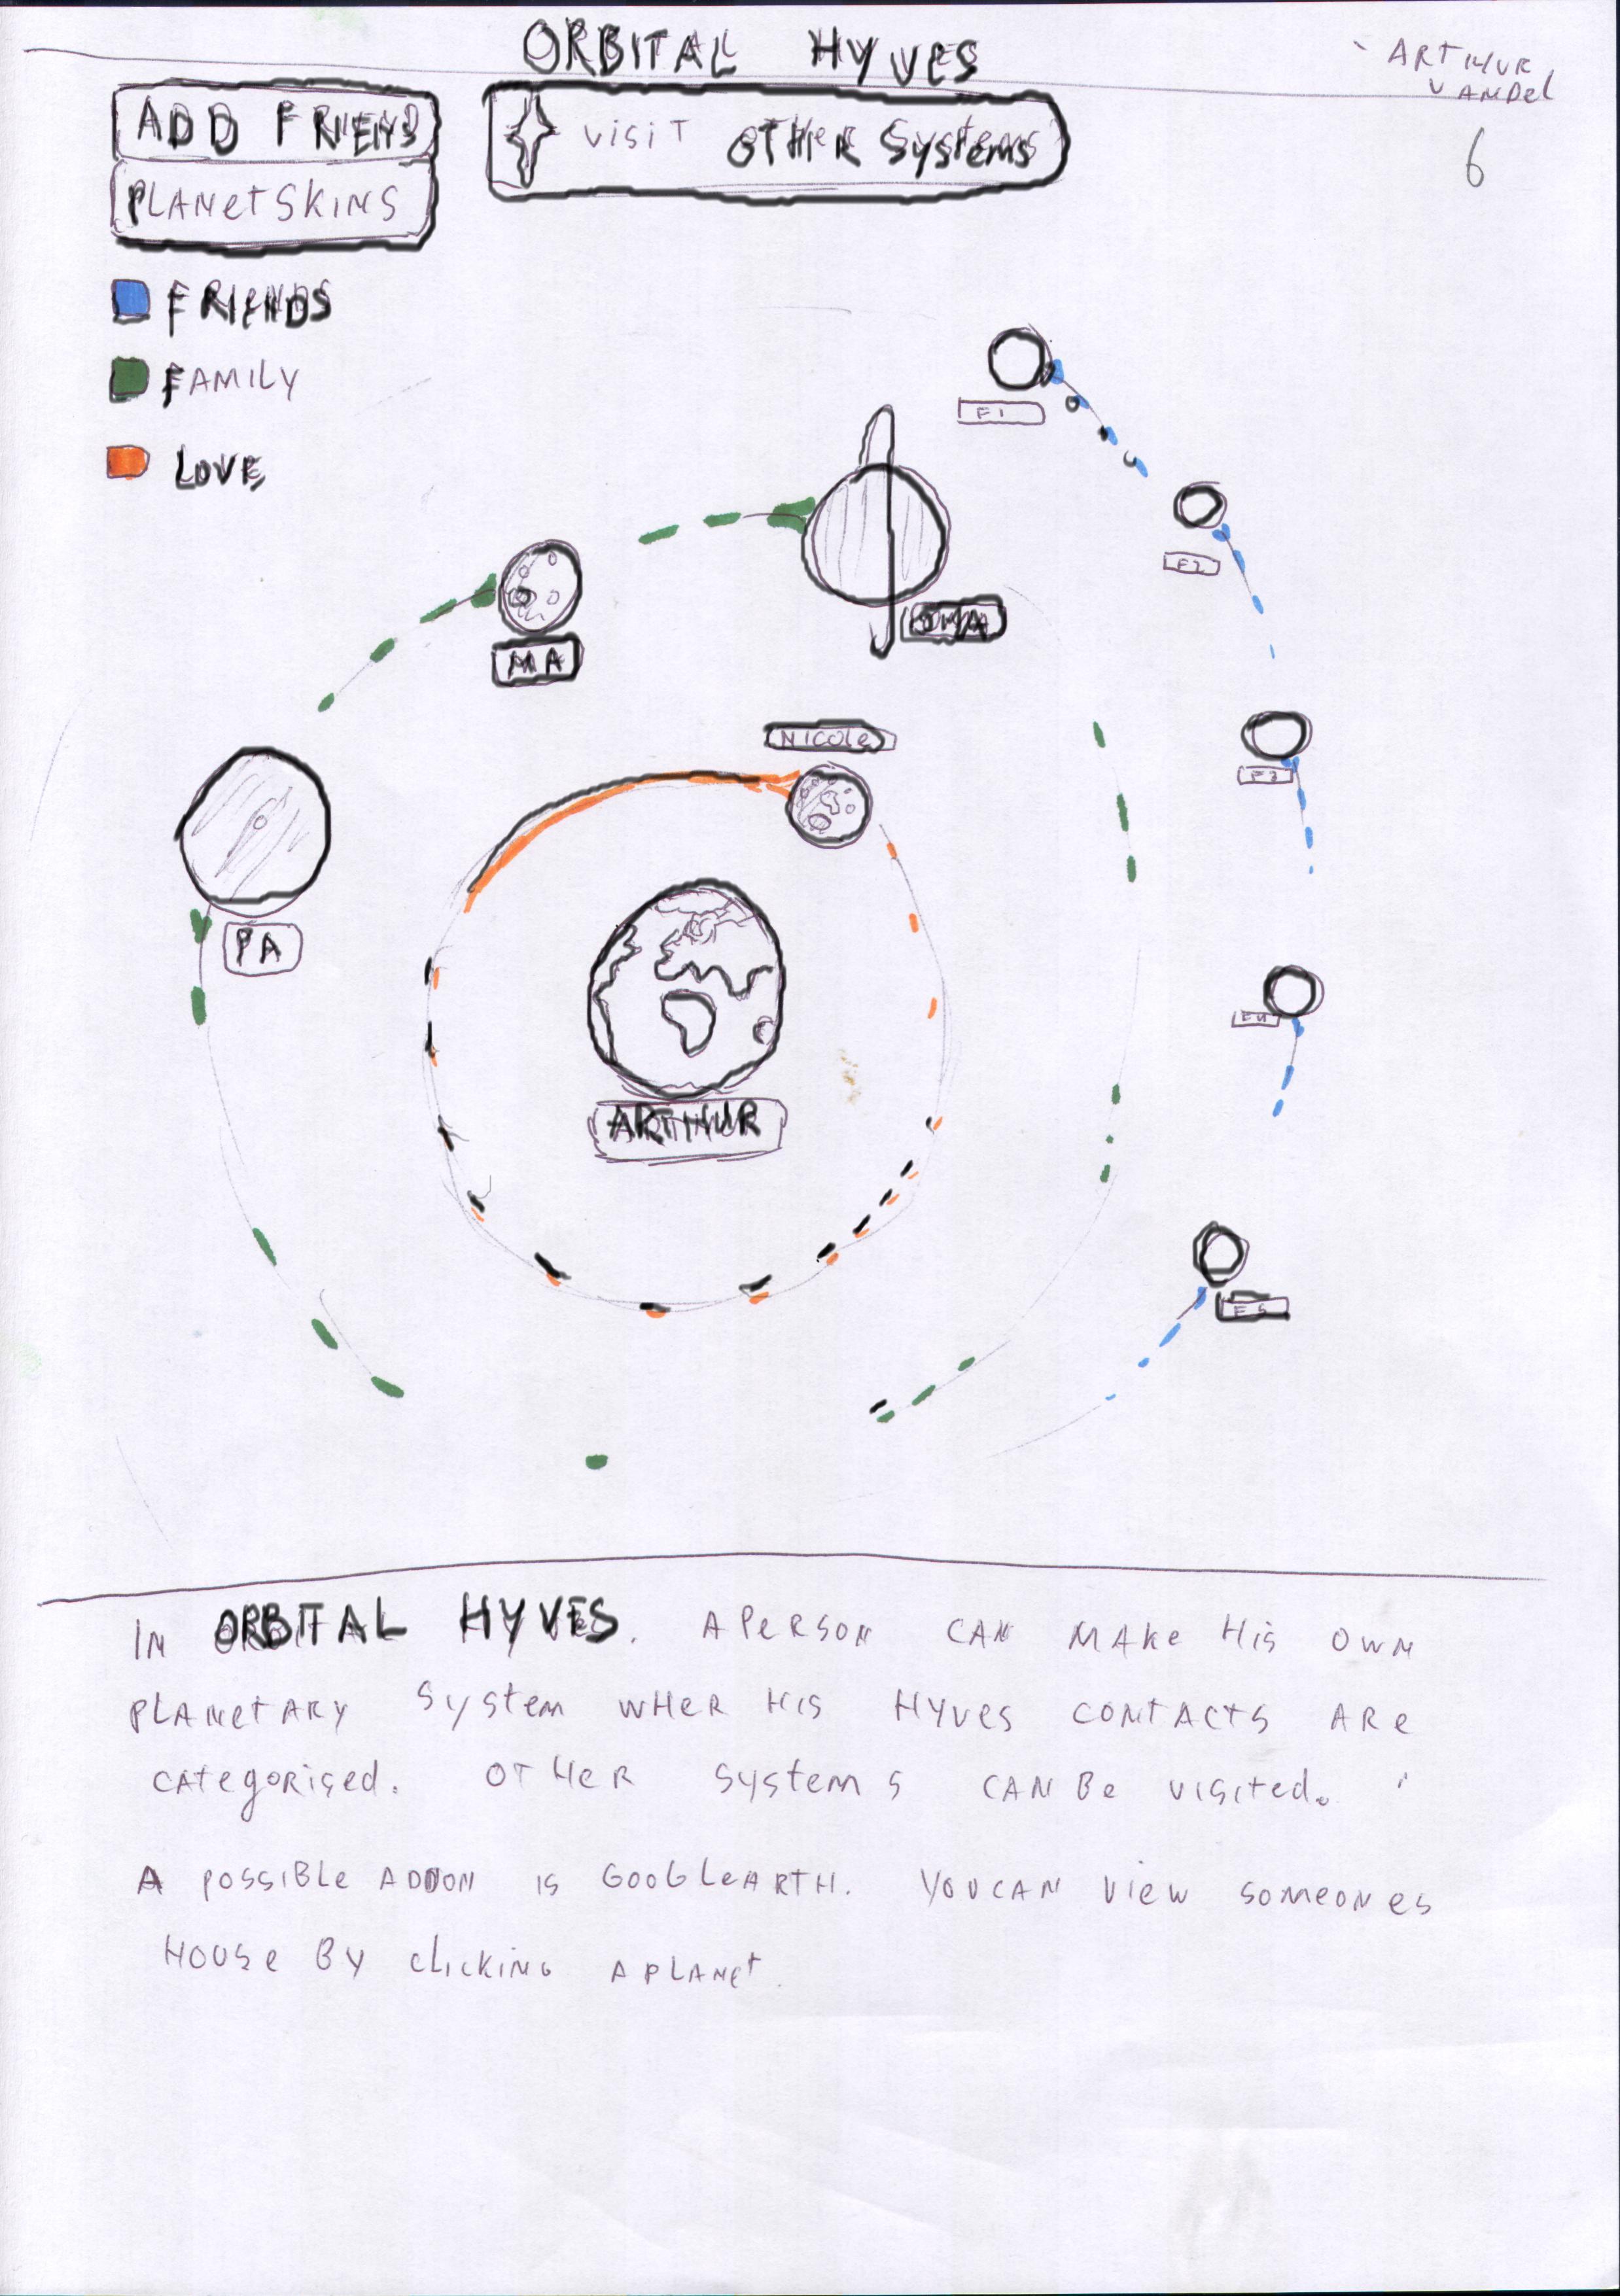 ORBITAL HYVES
ARTHUR
VANDEL
6
ADD FRIEND
PLANETSKINS
VISIT OTHER Systems
FRIENDS
FAMILY
LOVE
F1
F2
OMA
MA
NICOLE
F3
PA
F4
ARTHUR
F5
IN ORBITAL HYVES. A PERSON CAN MAKE HIS OWN
PLANETARY SYSTEM WHER HIS HYVES CONTACTS ARE
CATEGORISED. OTHER SYSTEMS CAN BE VISITED.
A POSSIBLE ADDON IS GOOGLEARTH. YOU CAN VIEW SOMEONES
HOUSE BY CLICKING A PLANET.